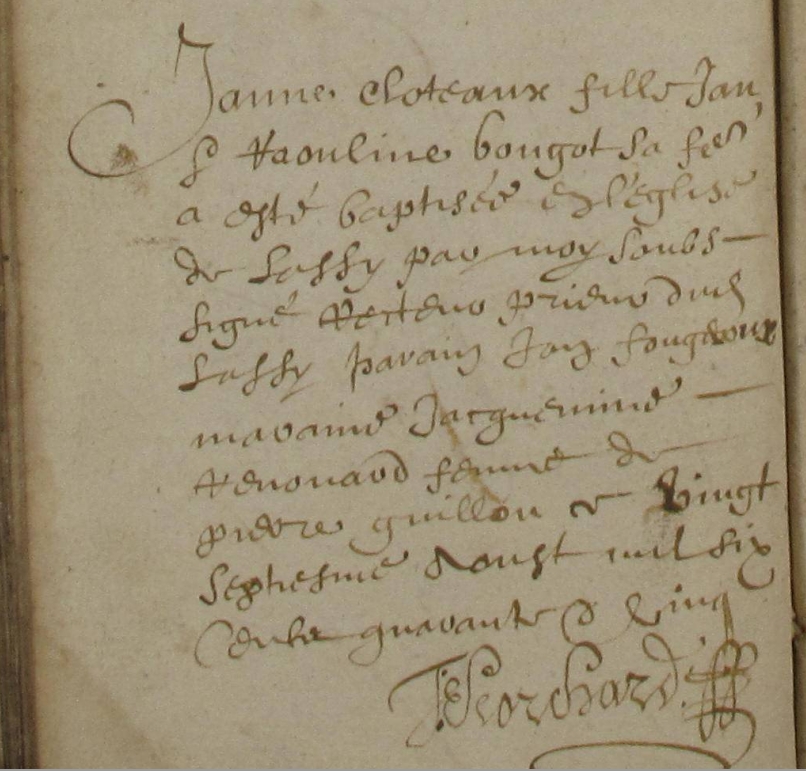 Janne cloteaux fille Jan
& Raouline bougot sa fe
a esté baptisée en l'eglise
de Lassy par moy soubs
signé Recteur prieur dud
Lassy parain Jan fougeroux
maraine Jacquemine
Renouard femme de
pierre guillou ce vingt
septiesme Aoust mil six
cents quarante & cinq